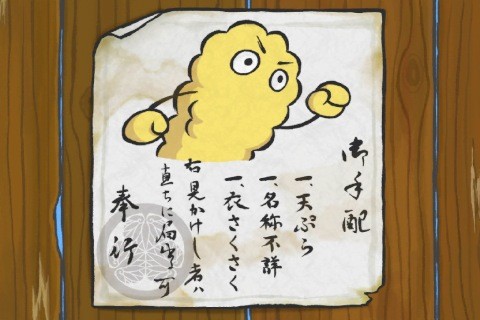 御手配
一、天ぷら
一、名称不詳
一、衣さくさく
右見かけし者ハ
直ちに届出可
奉行